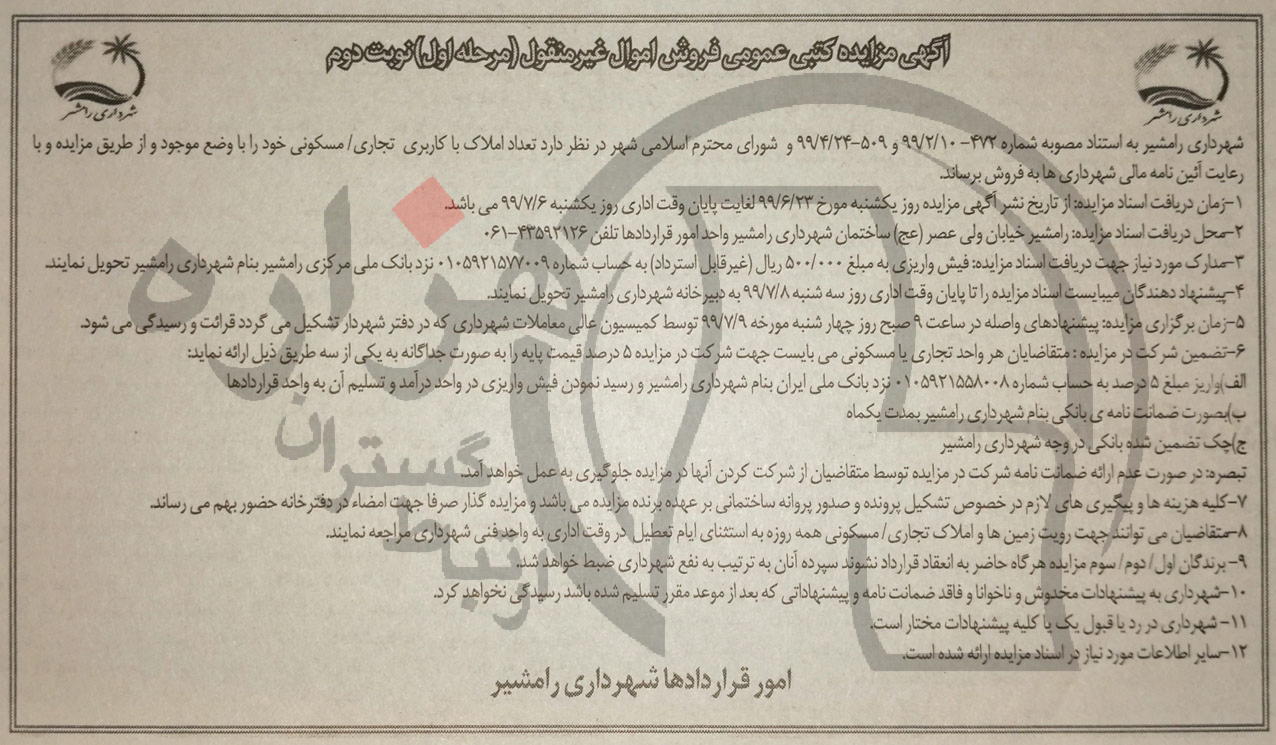 آگهی مزایده کتبی عمومی فروش اموال غیرمنقول (مرحله اول) نوبت دوم
شهرداری رامشیر
شهرداری رامشیر
شهرداری رامشیر به استناد مصوبه شماره ۴۷۲- ۹۹/۲/۱۰ و ۵۰۹-۹۹/۴/۲۴ و شورای محترم اسلامی شهر در نظر دارد تعداد املاک با کاربری تجاری/ مسکونی خود را با وضع موجود و از طریق مزایده و با
رعایت آئین نامه مالی شهرداری ها به فروش برساند.
۱-زمان دریافت اسناد مزایده: از تاریخ نشر آگهی مزایده روز یکشنبه مورخ ۹۹/۶/۲۳ لغایت پایان وقت اداری روز یکشنبه ۹۹/۷/۶ می باشد.
۲-محل دریافت اسناد مزایده: رامشیر خیابان ولی عصر (عج) ساختمان شهرداری رامشیر واحد امور قراردادها تلفن ۴۳۵۹۲۱۲۶-۰۶۱
۳-مدارک مورد نیاز جهت دریافت اسناد مزایده: فیش واریزی به مبلغ ۵۰۰/۰۰۰ ریال (غیرقابل استرداد) به حساب شماره ۰۱۰۵۹۲۱۵۷۷۰۰۹ نزد بانک ملی مرکزی رامشیر بنام شهرداری رامشیر تحویل نمایند.
۴-پیشنهاد دهندگان میبایست اسناد مزایده را تا پایان وقت اداری روز سه شنبه ۹۹/۷/۸ به دبیرخانه شهرداری رامشیر تحویل نمایند.
۵-زمان برگزاری مزایده: پیشنهادهای واصله در ساعت ۹ صبح روز چهار شنبه مورخه ۹۹/۷/۹ توسط کمیسیون عالی معاملات شهرداری که در دفتر شهردار تشکیل می گردد قرائت و رسیدگی می شود.
۶-تضمین شرکت در مزایده : متقاضایان هر واحد تجاری یا مسکونی می بایست جهت شرکت در مزایده ۵ درصد قیمت پایه را به صورت جداگانه به یکی از سه طریق ذیل ارائه نماید:
الف)واریز مبلغ ۵ درصد به حساب شماره ۰۱۰۵۹۲۱۵۵۸۰۰۸ نزد بانک ملی ایران بنام شهرداری رامشیر و رسید نمودن فیش واریزی در واحد درآمد و تسلیم آن به واحد قراردادها
ب)بصورت ضمانت نامه ی بانکی بنام شهرداری رامشیر بمدت یکماه
ج)چک تضمین شده بانکی در وجه شهرداری رامشیر
تبصره: در صورت عدم ارائه ضمانت نامه شرکت در مزایده توسط متقاضیان از شرکت کردن آنها در مزایده جلوگیری به عمل خواهد آمد.
۷-کلیه هزینه ها و پیگیری های لازم در خصوص تشکیل پرونده و صدور پروانه ساختمانی بر عهده برنده مزایده می باشد و مزایده گذار صرفا جهت امضاء در دفترخانه حضور بهم می رساند.
۸-متقاضیان می توانند جهت رویت زمین ها و املاک تجاری/ مسکونی همه روزه به استثنای ایام تعطیل در وقت اداری به واحد فنی شهرداری مراجعه نمایند.
۹- برندگان اول/ دوم/ سوم مزایده هر گاه حاضر به انعقاد قرارداد نشوند سپرده آنان به ترتیب به نفع شهرداری ضبط خواهد شد.
۱۰-شهرداری به پیشنهادات مخدوش و ناخوانا و فاقد ضمانت نامه و پیشنهاداتی که بعد از موعد مقرر تسلیم شده باشد رسیدگی نخواهد کرد.
۱۱- شهرداری در رد یا قبول یک یا کلیه پیشنهادات مختار است.
۱۲-سایر اطلاعات مورد نیاز در اسناد مزایده ارائه شده است.
امور قراردادها شهرداری رامشیر
هزاره
گستران
ارتباط